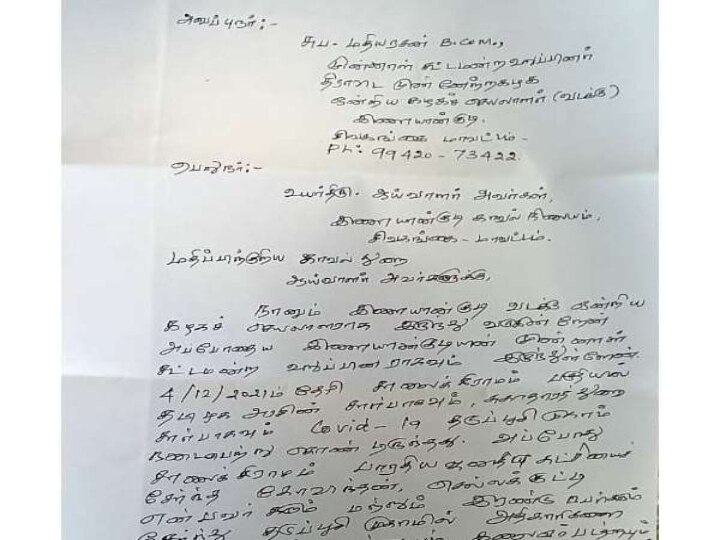 அனுப்புநர்:-
சுப. மதியரசன் B.Com.,
முன்னாள் சட்டமன்ற உறுப்பினர்
திராவிட முன்னேற்றகழக
ஒன்றிய கழகச் செயலாளர் (வடக்கு)
இளையான்குடி.
சிவகங்கை மாவட்டம்.
Ph: 99420-73422.
பெறுநர்:-
உயர்திரு. ஆய்வாளர் அவர்கள்,
இளையான்குடி காவல் நிலையம்,
சிவகங்கை - மாவட்டம்.
மதிப்பிற்குரிய காவல் துறை
ஆய்வாளர் அவர்களுக்கு,
நானும் இளையான்குடி வடக்கு ஒன்றிய
கழகச் செயலாளராக இருந்து வருகின்றேன்
அப்போதைய இளையான்குடியின் முன்னாள்
சட்டமன்ற உறுப்பினராகவும் இருந்துள்ளேன்.
4/12/2021ம் தேதி சாலைக்கிராமம் பகுதியில்
தமிழக அரசின் சார்பாகவும், சுகாதாரத்துறை
சார்பாகவும் Covid-19 தடுப்பூசி முகாம்
நடைபெற்று கொண்டிருந்தது. அப்போது
சாலைக்கிராமம் பாரதிய ஜனதா கட்சியைச்
சேர்ந்த கோவிந்தன், செல்லக்குட்டி
என்பவர்களும் மற்றும் இரண்டு பேர்களும்
சேர்ந்து தடுப்பூசி முகாமில் அதிகாரிகளை